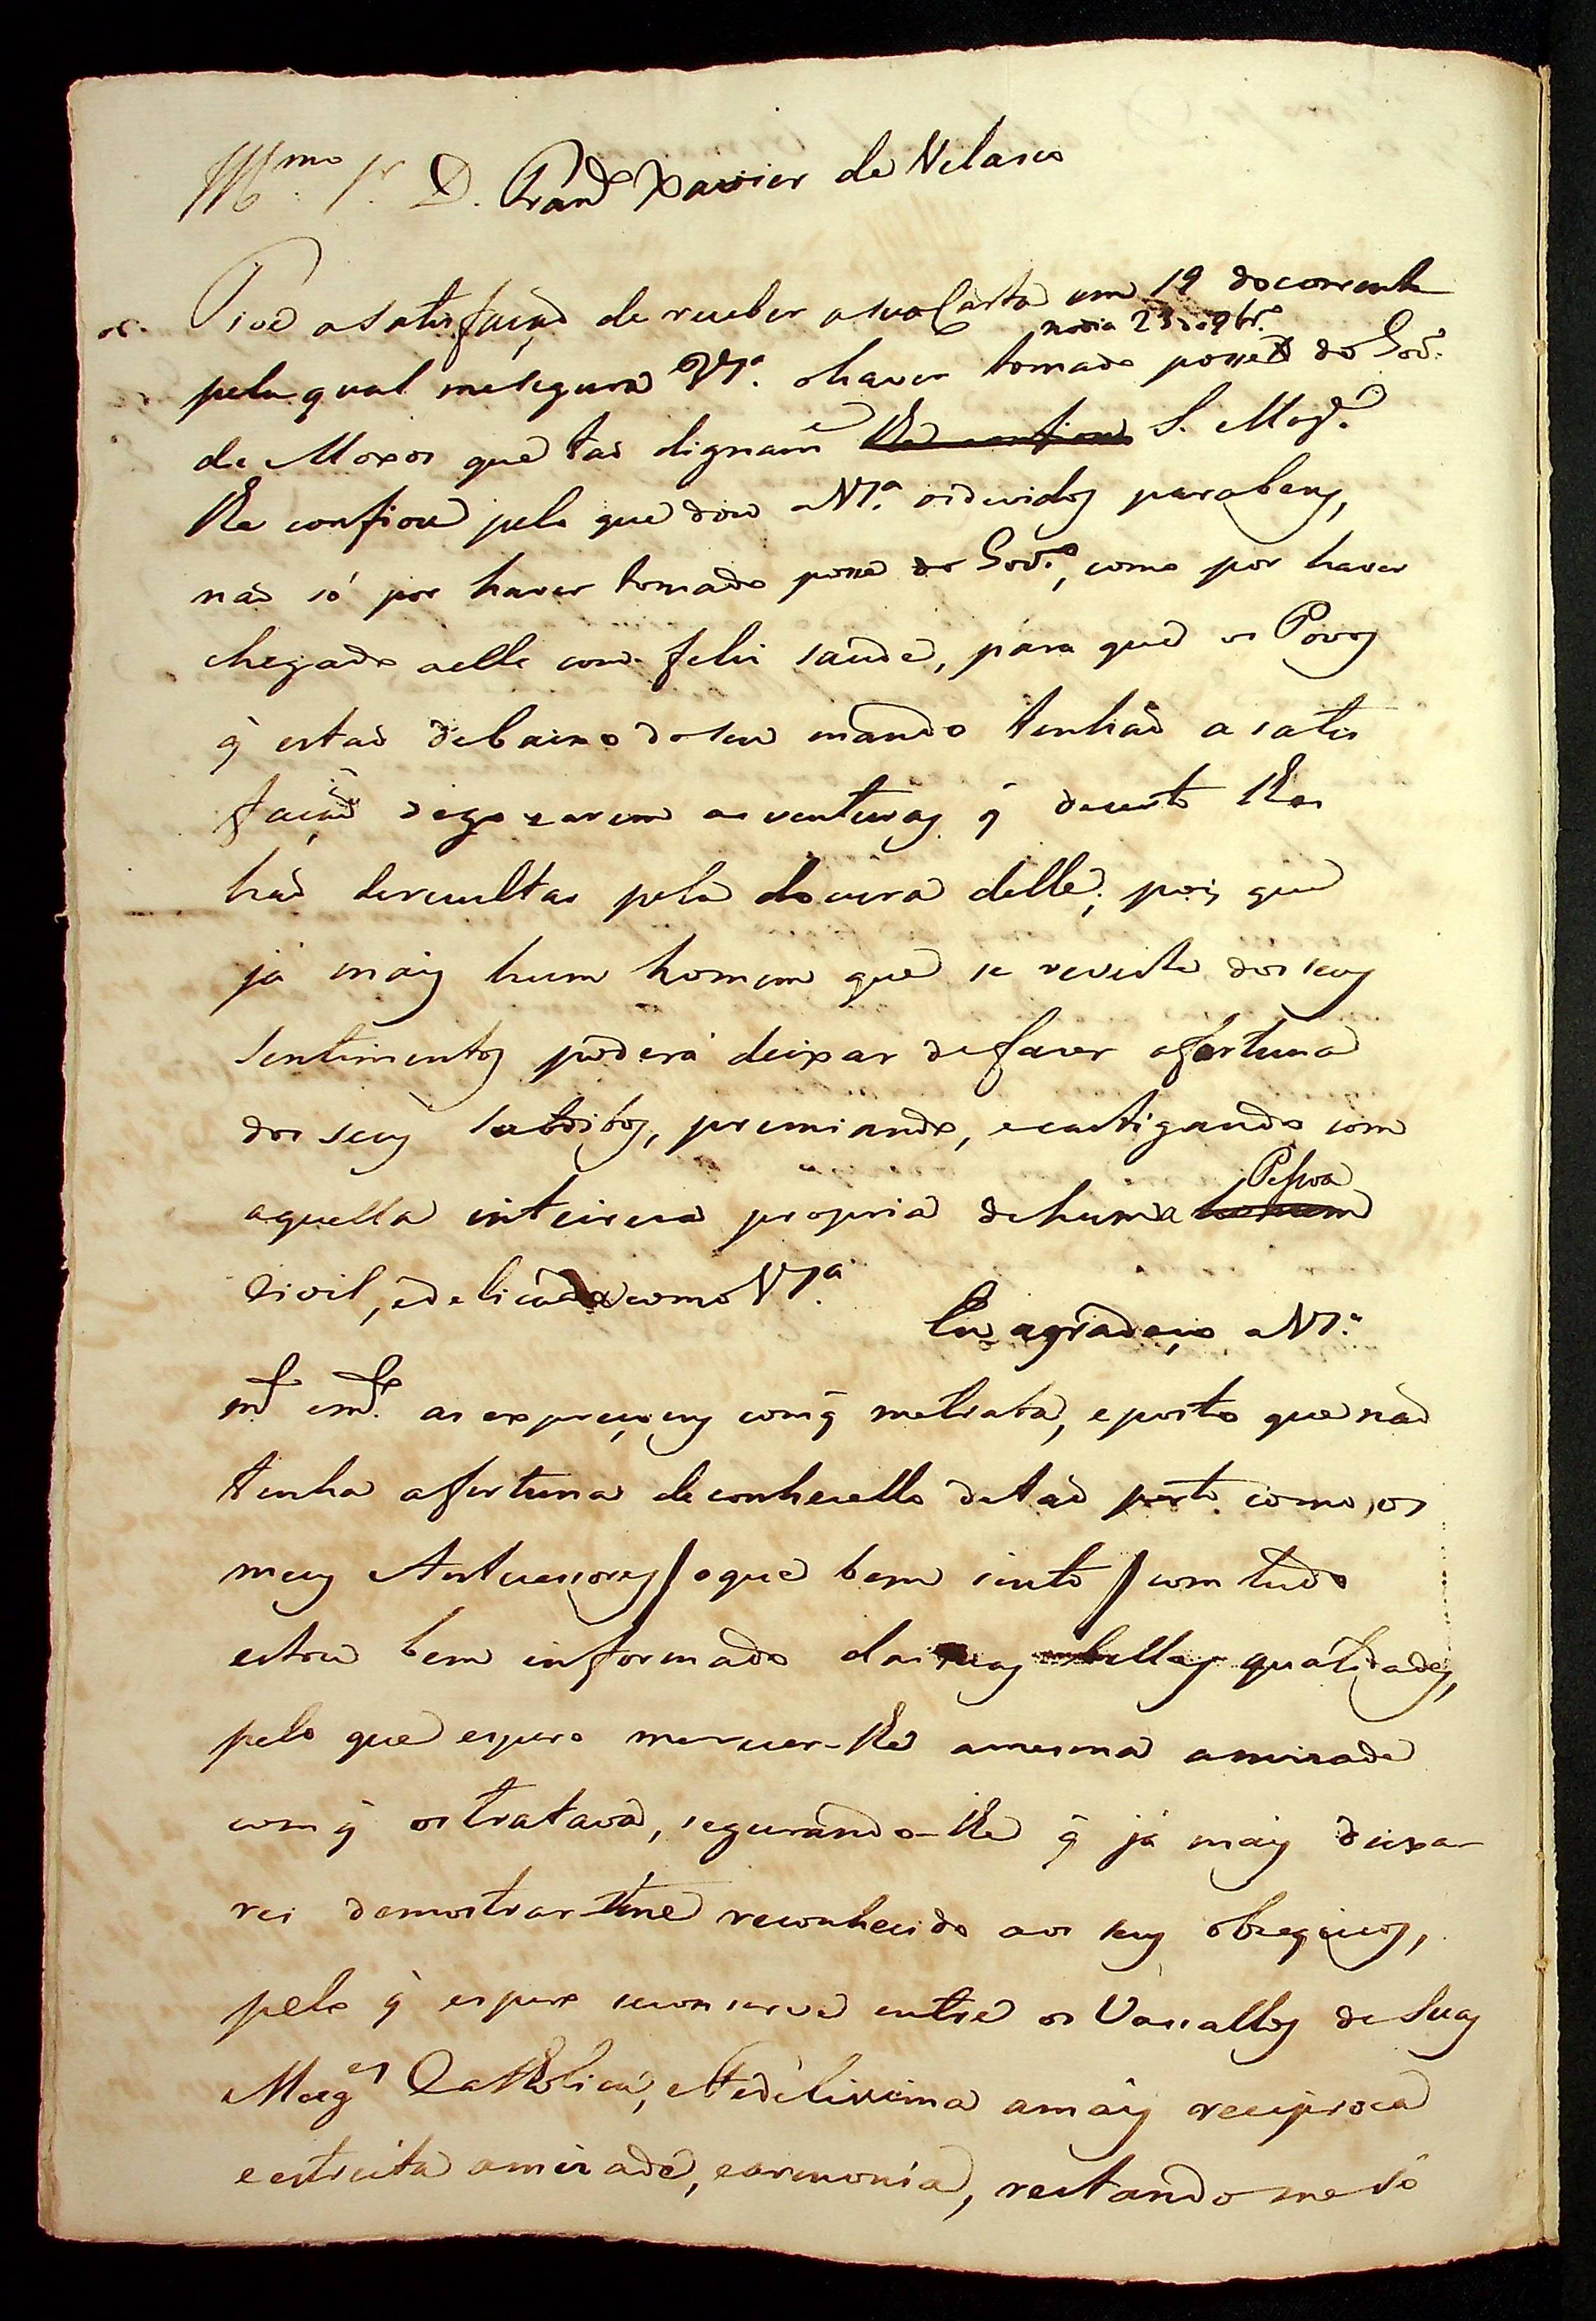 Illmo Sr. D. Franco Xavier de Velasco
Tive a satisfação de receber a sua Carta em 19 do corrente
no dia 23 de 9br.o
pela qual me segura VSa. o haver tomado posse do Gov.
de Moxos que tão dignamte lhe confiou S. Mage.
lhe confiou pelo que dou a VSa. os devidos parabens,
não só por haver tomado posse do Govo., como por haver
chegado a elle com feliz saude, para que os Povos
q̃ estão debaixo do seu mando tenhão a satis
fação de gozarem as venturas q̃ de certo lhes
hão de rezultar pela docura delle; pois que
já mais hum homem que se reviste dos seus
sentimentos poderá deixar de fazer a fortuna
dos seus subditos, premiando, e castigando com
aquella inteireza propria de huma homem
Pessoa
Civil, e delicada como VSa.
Eu agradeço a VSa.
mto. e mto. as expreçoens com q̃ me trata, e posto que não
tenha a fortuna de conhecello de tão perto como os
meus Antecessores / o que bem sinto / com tudo
estou bem informado das suas bellas qualidades,
pelo que espero merecer-lhe a mesma amizade
com q̃ os tratava, segurando-lhe q̃ já mais deixa-
rei de mostrar-me reconhecido aos seus obzequios,
pelo q̃ espero se conserve entre os Vassallos de Suas
Mages Catholica, e Fidelissima a mais reciproca
e estreita amizade, e armonia, restando me só